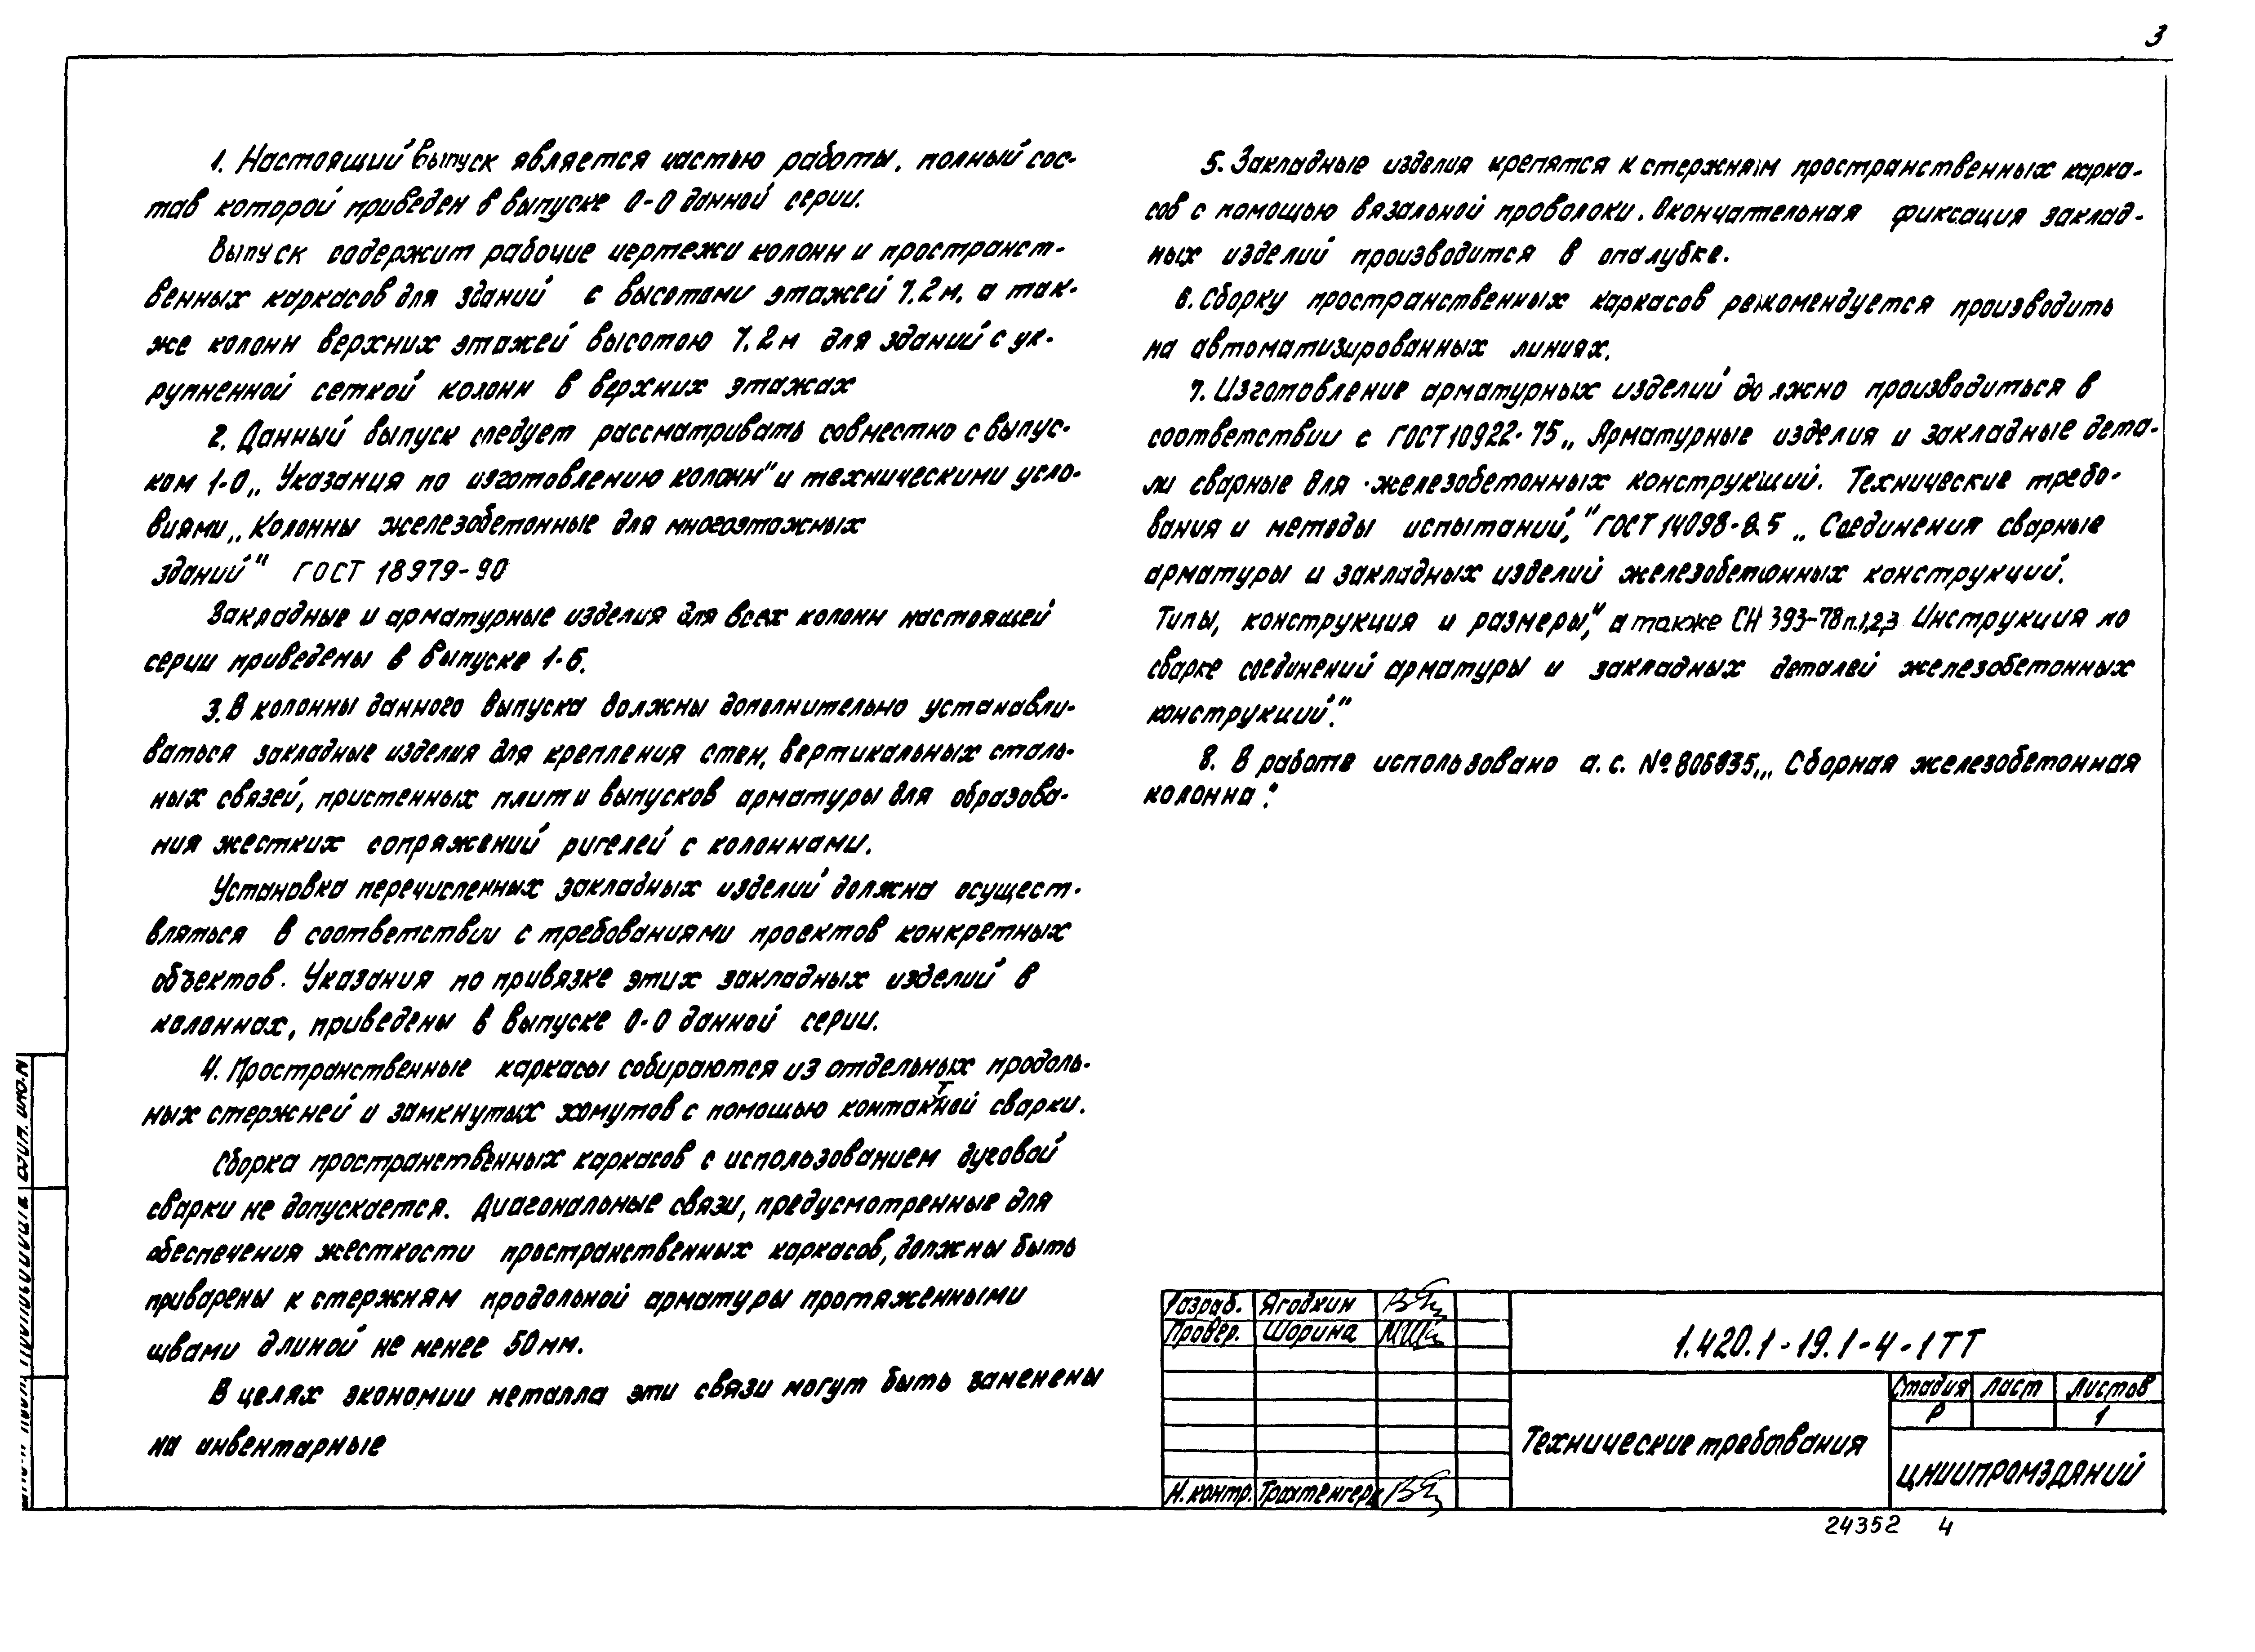 3
1. Настоящий выпуск является частью работы, полный сос-
тав которой приведен в выпуске 0-0 данной серии.
Выпуск содержит рабочие чертежи колонн и пространст-
венных каркасов для зданий с высотами этажей 7.2м, а так-
же колонн верхних этажей высотою 7.2м для зданий с ук-
рупненной сеткой колонн в верхних этажах
2. Данный выпуск следует рассматривать совместно с выпус-
ком 1-0 „Указания по изготовлению колонн" и техническими усло-
виями „Колонны железобетонные для многоэтажных
зданий" ГОСТ 18979-90
Закладные и арматурные изделия для всех колонн настоящей
серии приведены в выпуске 1-6.
3. В колонны данного выпуска должны дополнительно устанавли-
ваться закладные изделия для крепления стен, вертикальных сталь-
ных связей, пристенных плит и выпусков арматуры для образова-
ния жестких сопряжений ригелей с колоннами.
Установка перечисленных закладных изделий должна осущест-
вляться в соответствии с требованиями проектов конкретных
объектов. Указания по привязке этих закладных изделий в
колоннах, приведены в выпуске 0-0 данной серии.
4. Пространственные каркасы собираются из отдельных продоль-
ных стержней и замкнутых хомутов с помощью контактной сварки.
Сборка пространственных каркасов с использованием дуговой
сварки не допускается. Диагональные связи, предусмотренные для
обеспечения жесткости пространственных каркасов, должны быть
приварены к стержням продольной арматуры протяженными
швами длиной не менее 50мм.
В целях экономии металла эти связи могут быть заменены
на инвентарные
5. Закладные изделия крепятся к стержням пространственных карка-
сов с помощью вязальной проволоки. Окончательная фиксация заклад-
ных изделий производится в опалубке.
6. Сборку пространственных каркасов рекомендуется производить
на автоматизированных линиях.
7. Изготовление арматурных изделий должно производиться в
соответствии с ГОСТ 10922-75 „Арматурные изделия и закладные дета-
ли сварные для железобетонных конструкций. Технические требо-
вания и методы испытаний," ГОСТ 14098-85 „Соединения сварные
арматуры и закладных изделий железобетонных конструкций.
Типы, конструкция и размеры," а также СН 393-78 п.1,2,3 Инструкция по
сварке соединений арматуры и закладных деталей железобетонных
конструкций."
8. В работе использовано а.с. №806835 „Сборная железобетонная
колонна".
Разраб. Ягодкин
Провер. Шорина
Н.контр.
1.420.1-19.1-4-1ТТ
Технические требования
Стадия Лист Листов
Р 1
ЦНИИПРОМЗДАНИЙ
24352 4